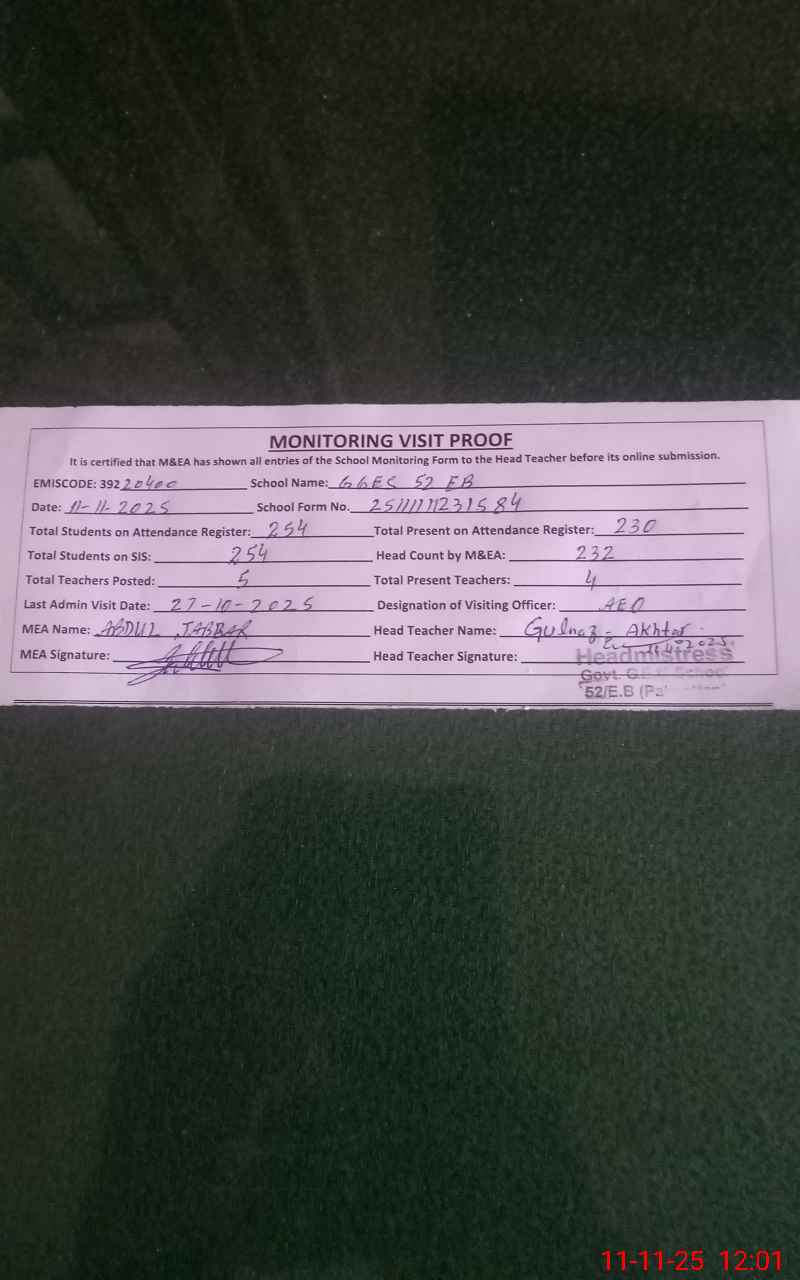 MONITORING VISIT PROOF
It is certified that M&EA has shown all entries of the School Monitoring Form to the Head Teacher before its online submission.
EMISCODE: 39220400 School Name: GGES 52 EB
Date: 11-11-2025 School Form No.
Total Students on Attendance Register: 254 Total Present on Attendance Register: 230
Total Students on SIS: 254 Head Count by M&EA: 232
Total Teachers Posted: 5 Total Present Teachers: 4
Last Admin Visit Date: 27-10-2025 Designation of Visiting Officer: AEO
MEA Name: ABDUL JABBAR Head Teacher Name: Gulnaz - Akhtar
MEA Signature: Head Teacher Signature:
Headmistress
Govt.
52/E.B
11-11-25 12:01